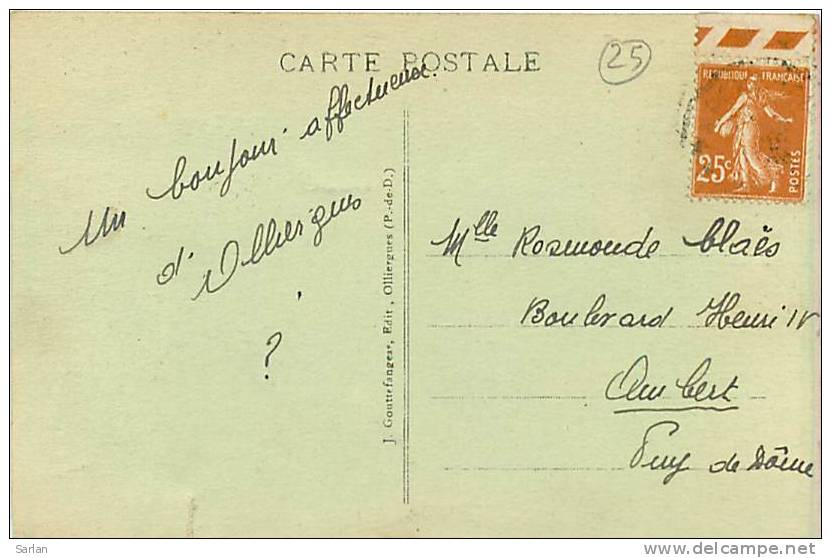 CARTE POSTALE
25
RÉPUBLIQUE FRANÇAISE
25c
POSTES
Un bonjour affectueux
d'Olliergues
?
J. Gouttefangeas, Edit, Olliergues (P.-de-D.)
Mlle Rosmonde Claës
Boulevard Henri IV
Ambert
Puy de Dôme
Sarlan
www.delcampe.net